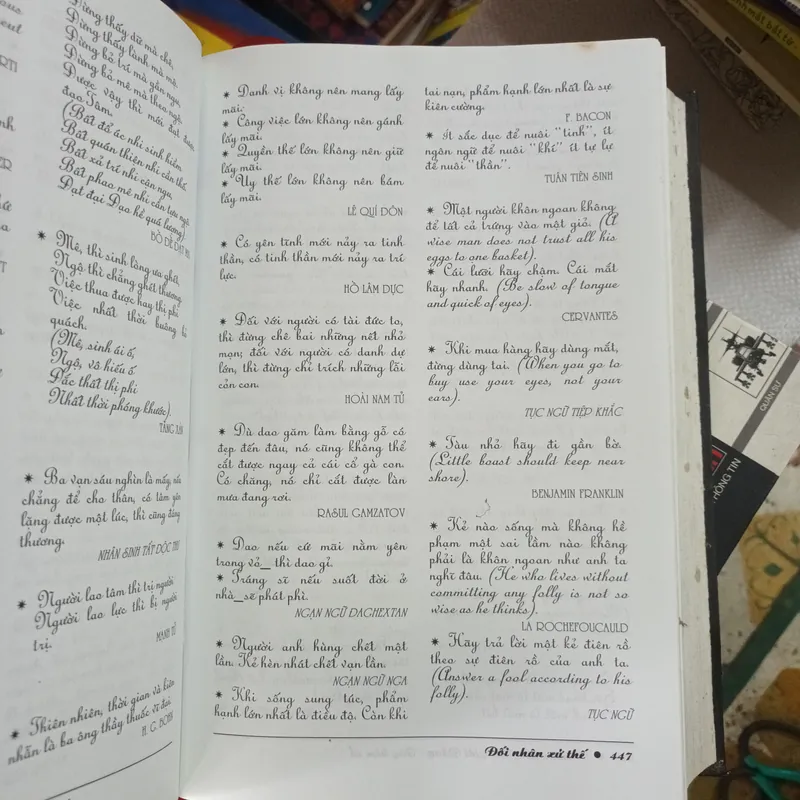 Đừng thấy dữ mà chê,
Đừng thấy lành mà mộ.
Đừng bỏ trí mà gần ngu,
Đừng bỏ mê mà theo ngộ,
Được vậy thì mới đạt được
đạo Tâm.
(Bất đố ác nhi sinh hiềm
Bất quán thiện nhi cần thố
Bất xả trí nhi cận ngu,
Bất phao mê nhi tựu ngộ
Đạt đại Đạo hề quá lượng)
BỒ ĐỀ ĐẠT
* Mê, thì sinh lòng ưa ghét,
Ngộ thì chẳng ghét thương
Việc thua được hay thị phi
Việc nhất thời buông
quách.
(Mê, sinh ái ố,
Ngộ, vô hiếu ố
Đắc thất thị phi
Nhất thời phóng khước).
TĂNG XÁN
* Ba vạn sáu nghìn là mấy, nếu
chẳng để cho thân, có tâm gồm
lặng được một lúc, thì cũng đáng
thương.
NHÂN SINH TẤT ĐỘC THƯ
* Người lao tâm thì trị người
Người lao lực thì bị người
trị.
MẠNH TỬ
* Thiên nhiên, thời gian và kiên
nhẫn là ba ông thầy thuốc vĩ đại.
H. G. BOHN
* Danh vị không nên mang lấy
mãi.
* Công việc lớn không nên gánh
lấy mãi.
* Quyền thế lớn không nên giữ
lấy mãi.
* Uy thế lớn không nên bám
lấy mãi.
LÊ QUÍ ĐÔN
* Có yên tĩnh mới nảy ra tinh
thần, có tinh thần mới nảy ra trí
lực.
HỒ LÂM DỰC
* Đối với người có tài đức to,
thì đừng chê bai những nết nhỏ
mọn; đối với người có danh dự
lớn, thì đừng chỉ trích những lỗi
cỏn con.
HOÀI NAM TỬ
* Dù dao găm làm bằng gỗ có
đẹp đến đâu, nó cũng không thể
cắt được ngay cả cái cổ gà con.
Có chăng, nó chỉ cắt được làn
mưa đang rơi.
RASUL GAMZATOV
* Dao nếu cứ mãi nằm yên
trong vỏ_ thì dao gỉ.
* Tráng sĩ nếu suốt đời ở
nhà_sẽ phát phì.
NGẠN NGỮ DAGHEXTAN
* Người anh hùng chết một
lần. Kẻ hèn nhát chết vạn lần.
NGẠN NGỮ NGA
* Khi sống sung túc, phẩm
hạnh lớn nhất là điều độ. Còn khi
tai nạn, phẩm hạnh lớn nhất là sự
kiên cường.
F. BACON
* Ít sắc dục để nuôi "tinh", ít
ngôn ngữ để nuôi "khí" ít tự lực
để nuôi "thần".
TUÂN TIÊN SINH
* Một người khôn ngoan không
để tất cả trứng vào một giỏ. (A
wise man does not trust all his
eggs to one basket).
* Cái lưỡi hãy chậm. Cái mắt
hãy nhanh. (Be slow of tongue
and quick of eyes).
CERVANTES
* Khi mua hàng hãy dùng mắt,
đừng dùng tai. (When you go to
buy use your eyes, not your
ears).
TỤC NGỮ TIỆP KHẮC
* Tàu nhỏ hãy đi gần bờ.
(Little boast should keep near
shore).
BENJAMIN FRANKLIN
* Kẻ nào sống mà không hề
phạm một sai lầm nào không
phải là khôn ngoan như anh ta
nghĩ đâu. (He who lives without
committing any folly is not so
wise as he thinks).
LA ROCHEFOUCAULD
* Hãy trả lời một kẻ điên rồ
theo sự điên rồ của anh ta.
(Answer a fool according to his
folly).
TỤC NGỮ
Đối nhân xử thế • 447
QUÂN SỰ
THÔNG TIN